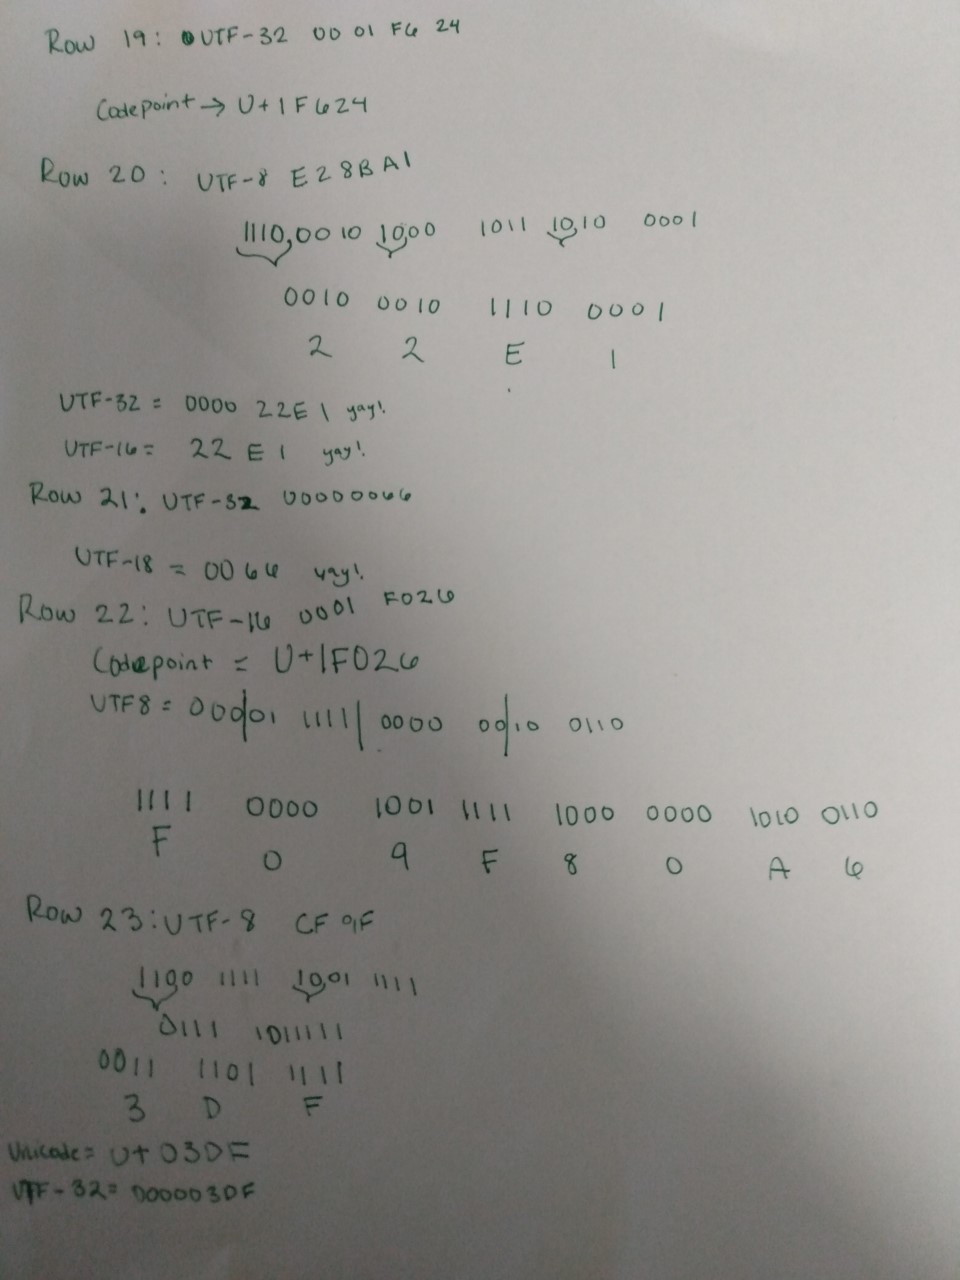 Row 19: UTF-32 00 01 F6 24
Codepoint → U+1F624
Row 20: UTF-8 E2 8B A1
1110,0010 10,00 1011 10,10 0001
0010 0010 1110 0001
2 2 E 1
UTF-32 = 0000 22E1 yay!
UTF-16= 22 E1 yay!
Row 21: UTF-32 00000066
UTF-18 = 0066 yay!
Row 22: UTF-16 0001 F026
Codepoint = U+1F026
UTF8 = 000|01 1111| 0000 00|10 0110
1111 0000 1001 1111 1000 0000 1010 0110
F 0 9 F 8 0 A 6
Row 23: UTF-8 CF 9F
1100 1111 10,01 1111
0111 1011111
0011 1101 1111
3 D F
Unicode= U+03DF
UTF-32= 000003DF